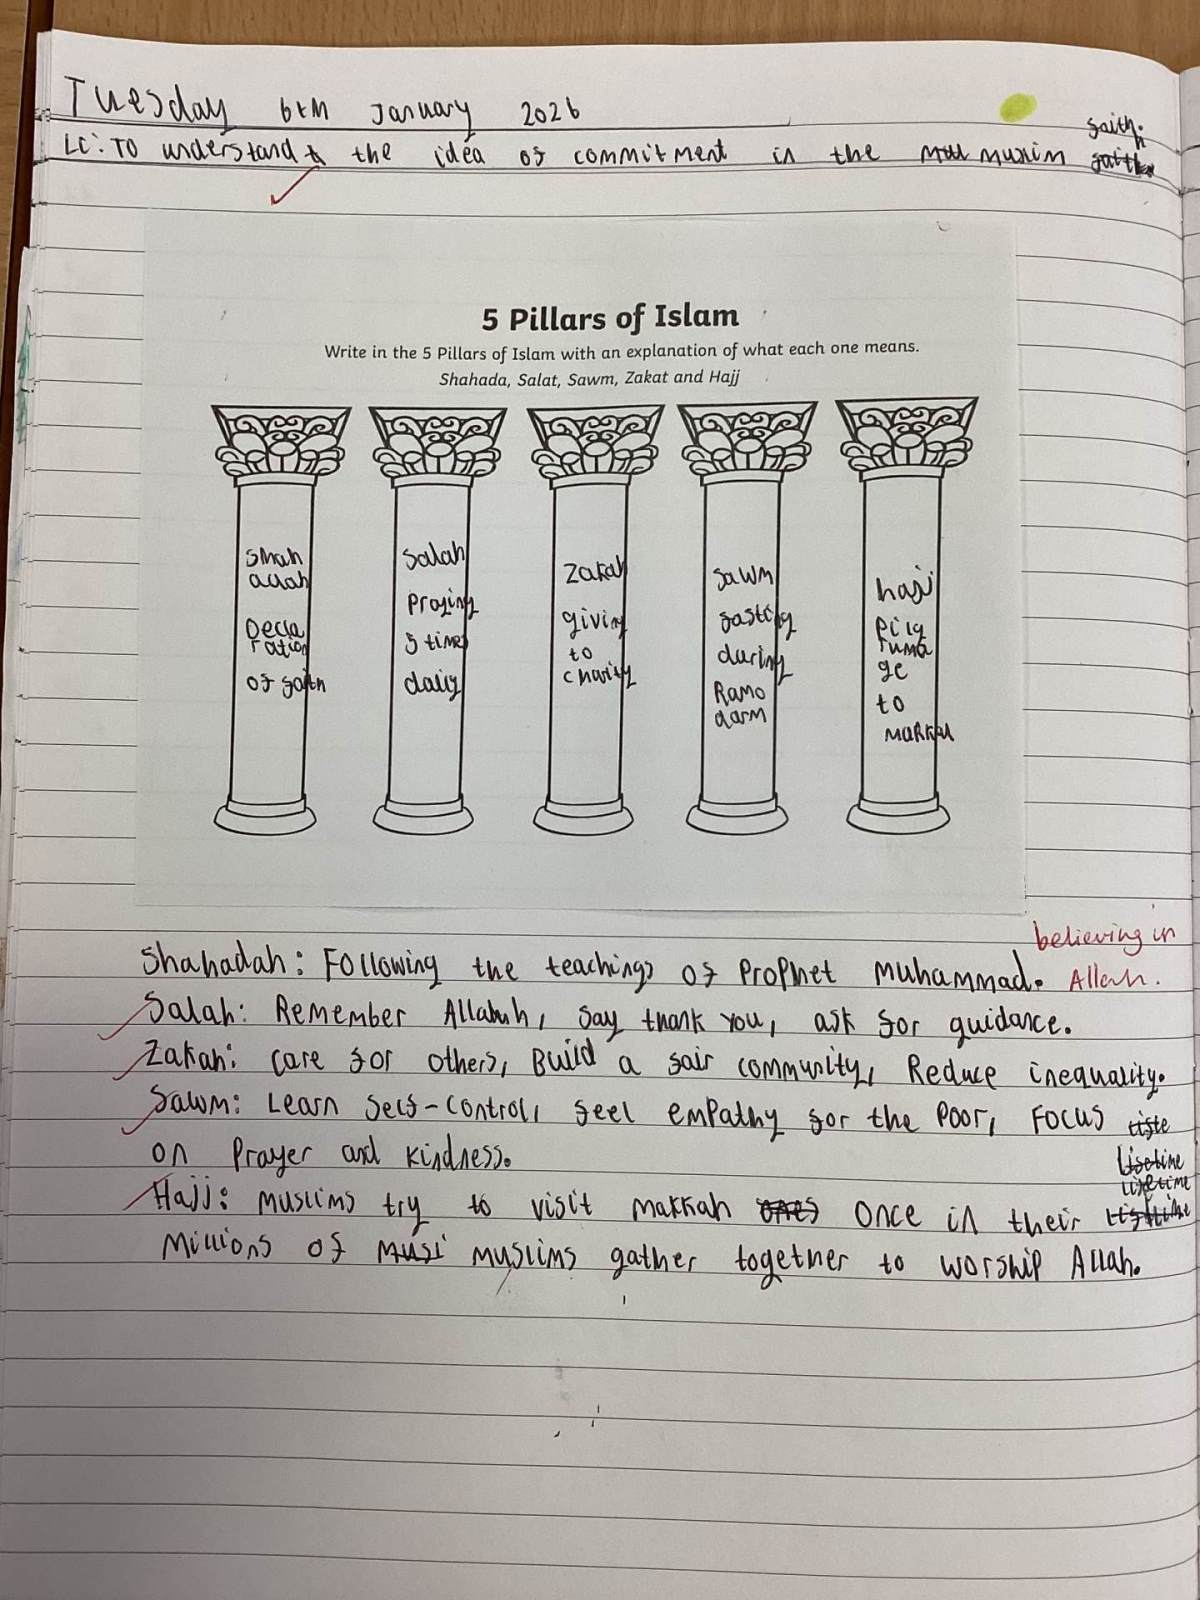 Tuesday 6th January 2026
faith.
LC: To understand the idea of commitment in the muslim faith.
5 Pillars of Islam
Write in the 5 Pillars of Islam with an explanation of what each one means.
Shahada, Salat, Sawm, Zakat and Hajj
Shah
allah
Decla
ration
of faith
Salah
Praying
5 times
daily
Zakah
giving
to
charity
Sawm
fasting
during
Rama
darm
hajj
Pilg
ruma
ge
to
makkah
believing in
Shahadah: Following the teachings of Prophet Muhammad. Allah.
Salah: Remember Allah, say thank you, ask for guidance.
Zakah: Care for others, Build a fair community, Reduce inequality.
Sawm: Learn self-control, feel empathy for the poor, Focus
on Prayer and kindness.
lifetime
Hajj: Muslims try to visit makkah once in their
Millions of muslims gather together to worship Allah.